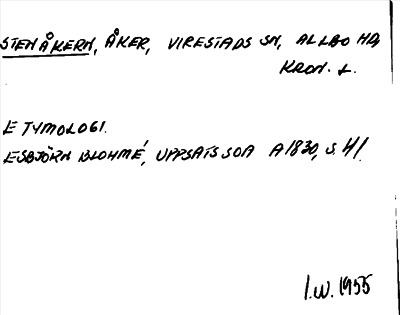 STENÅKERN, ÅKER, VIRESTADS SN, ALLBO HD,
KRON. L.
ETYMOLOGI.
ESBJÖRN BLOHMÉ, UPPSATS SOA A1830, S. 41.
I.W. 1955